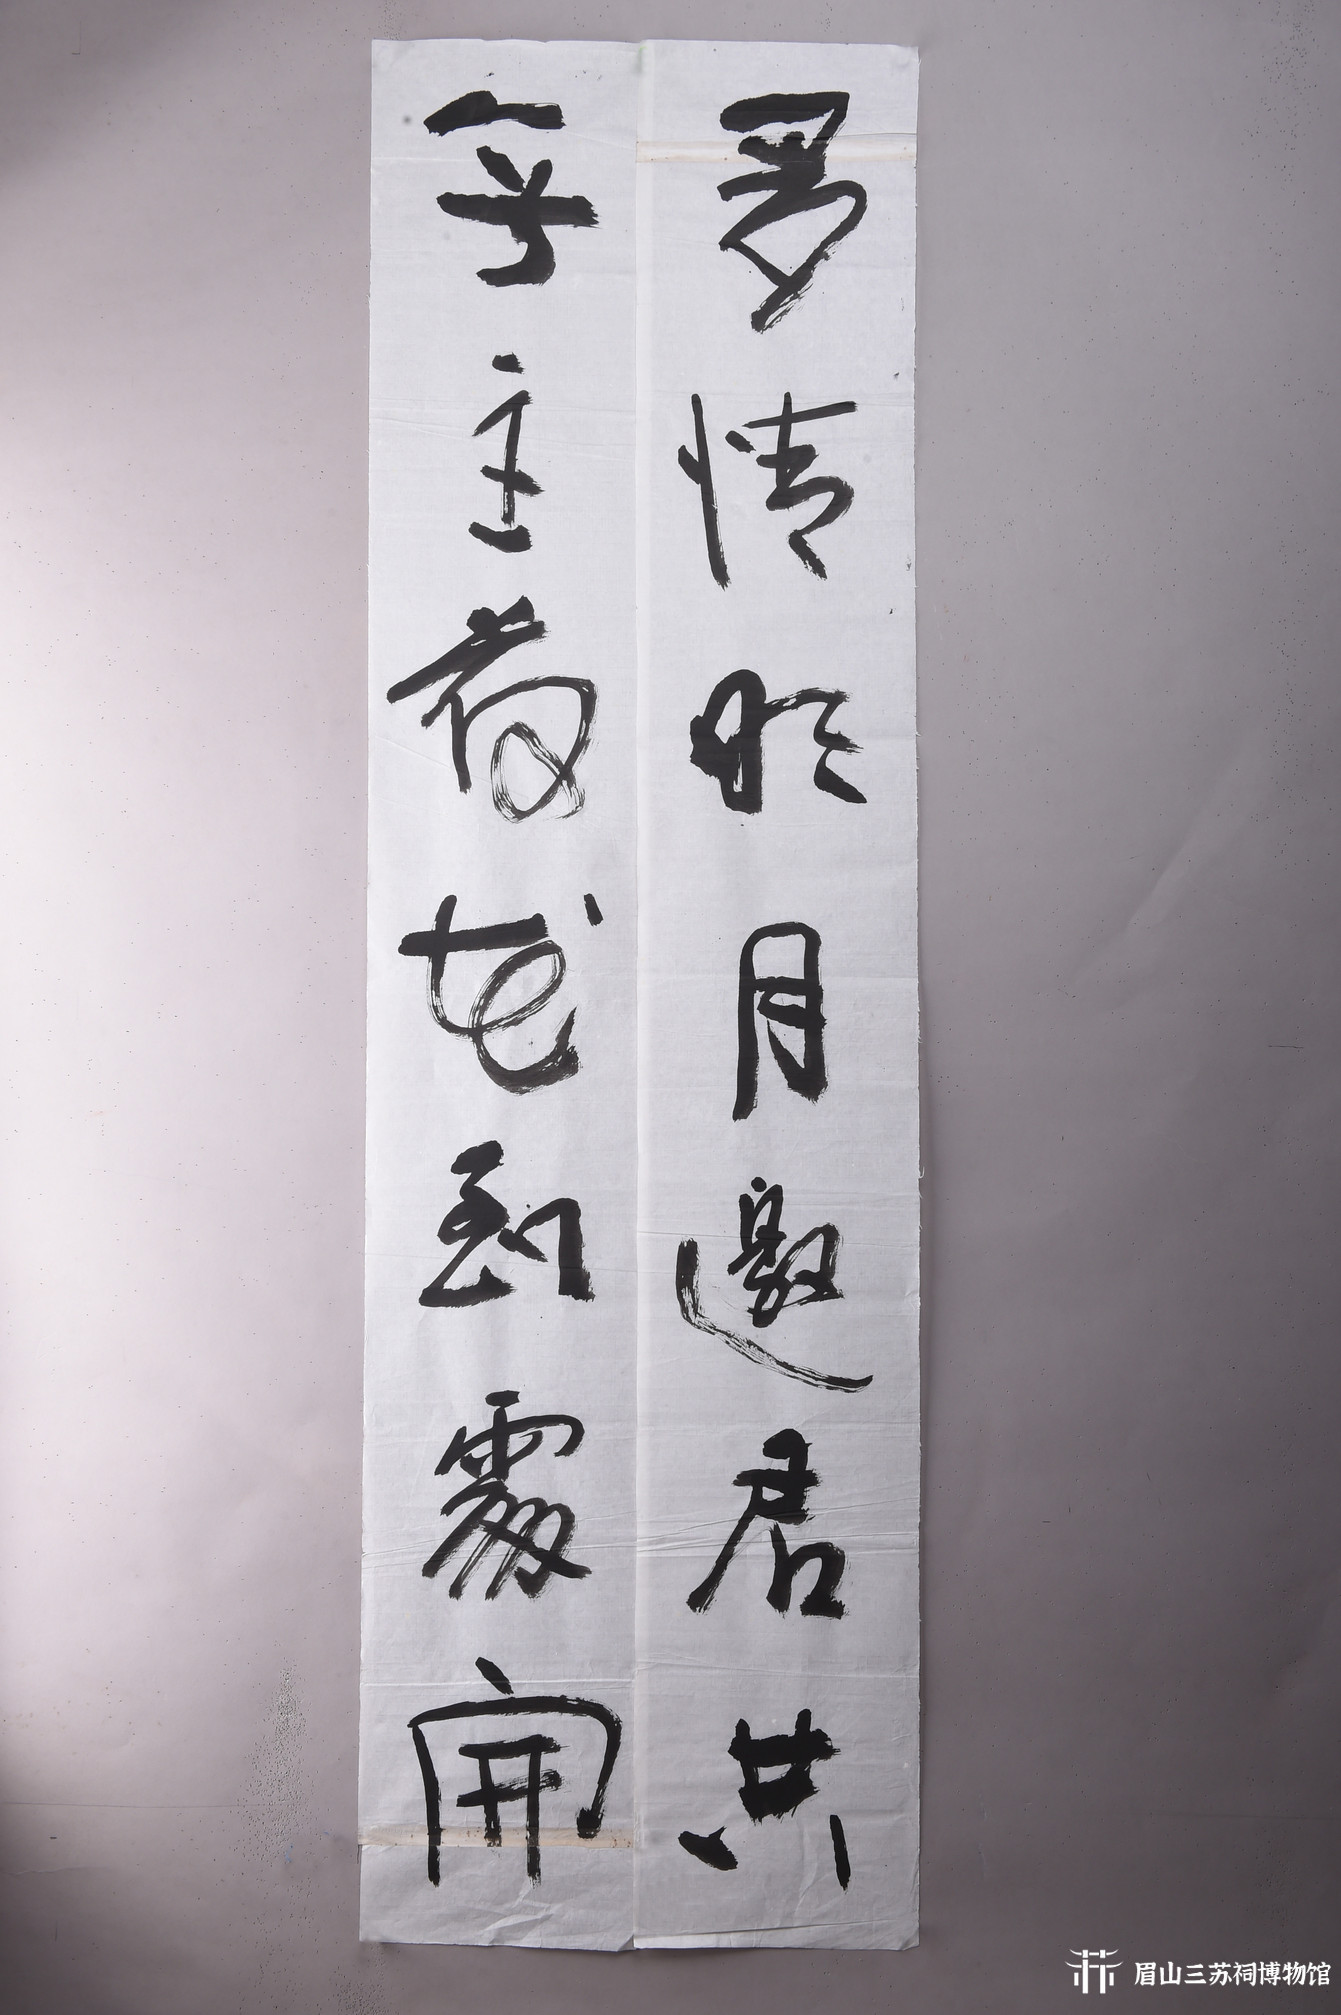 多情明月邀君共
無主荷花到處開
眉山三苏祠博物馆